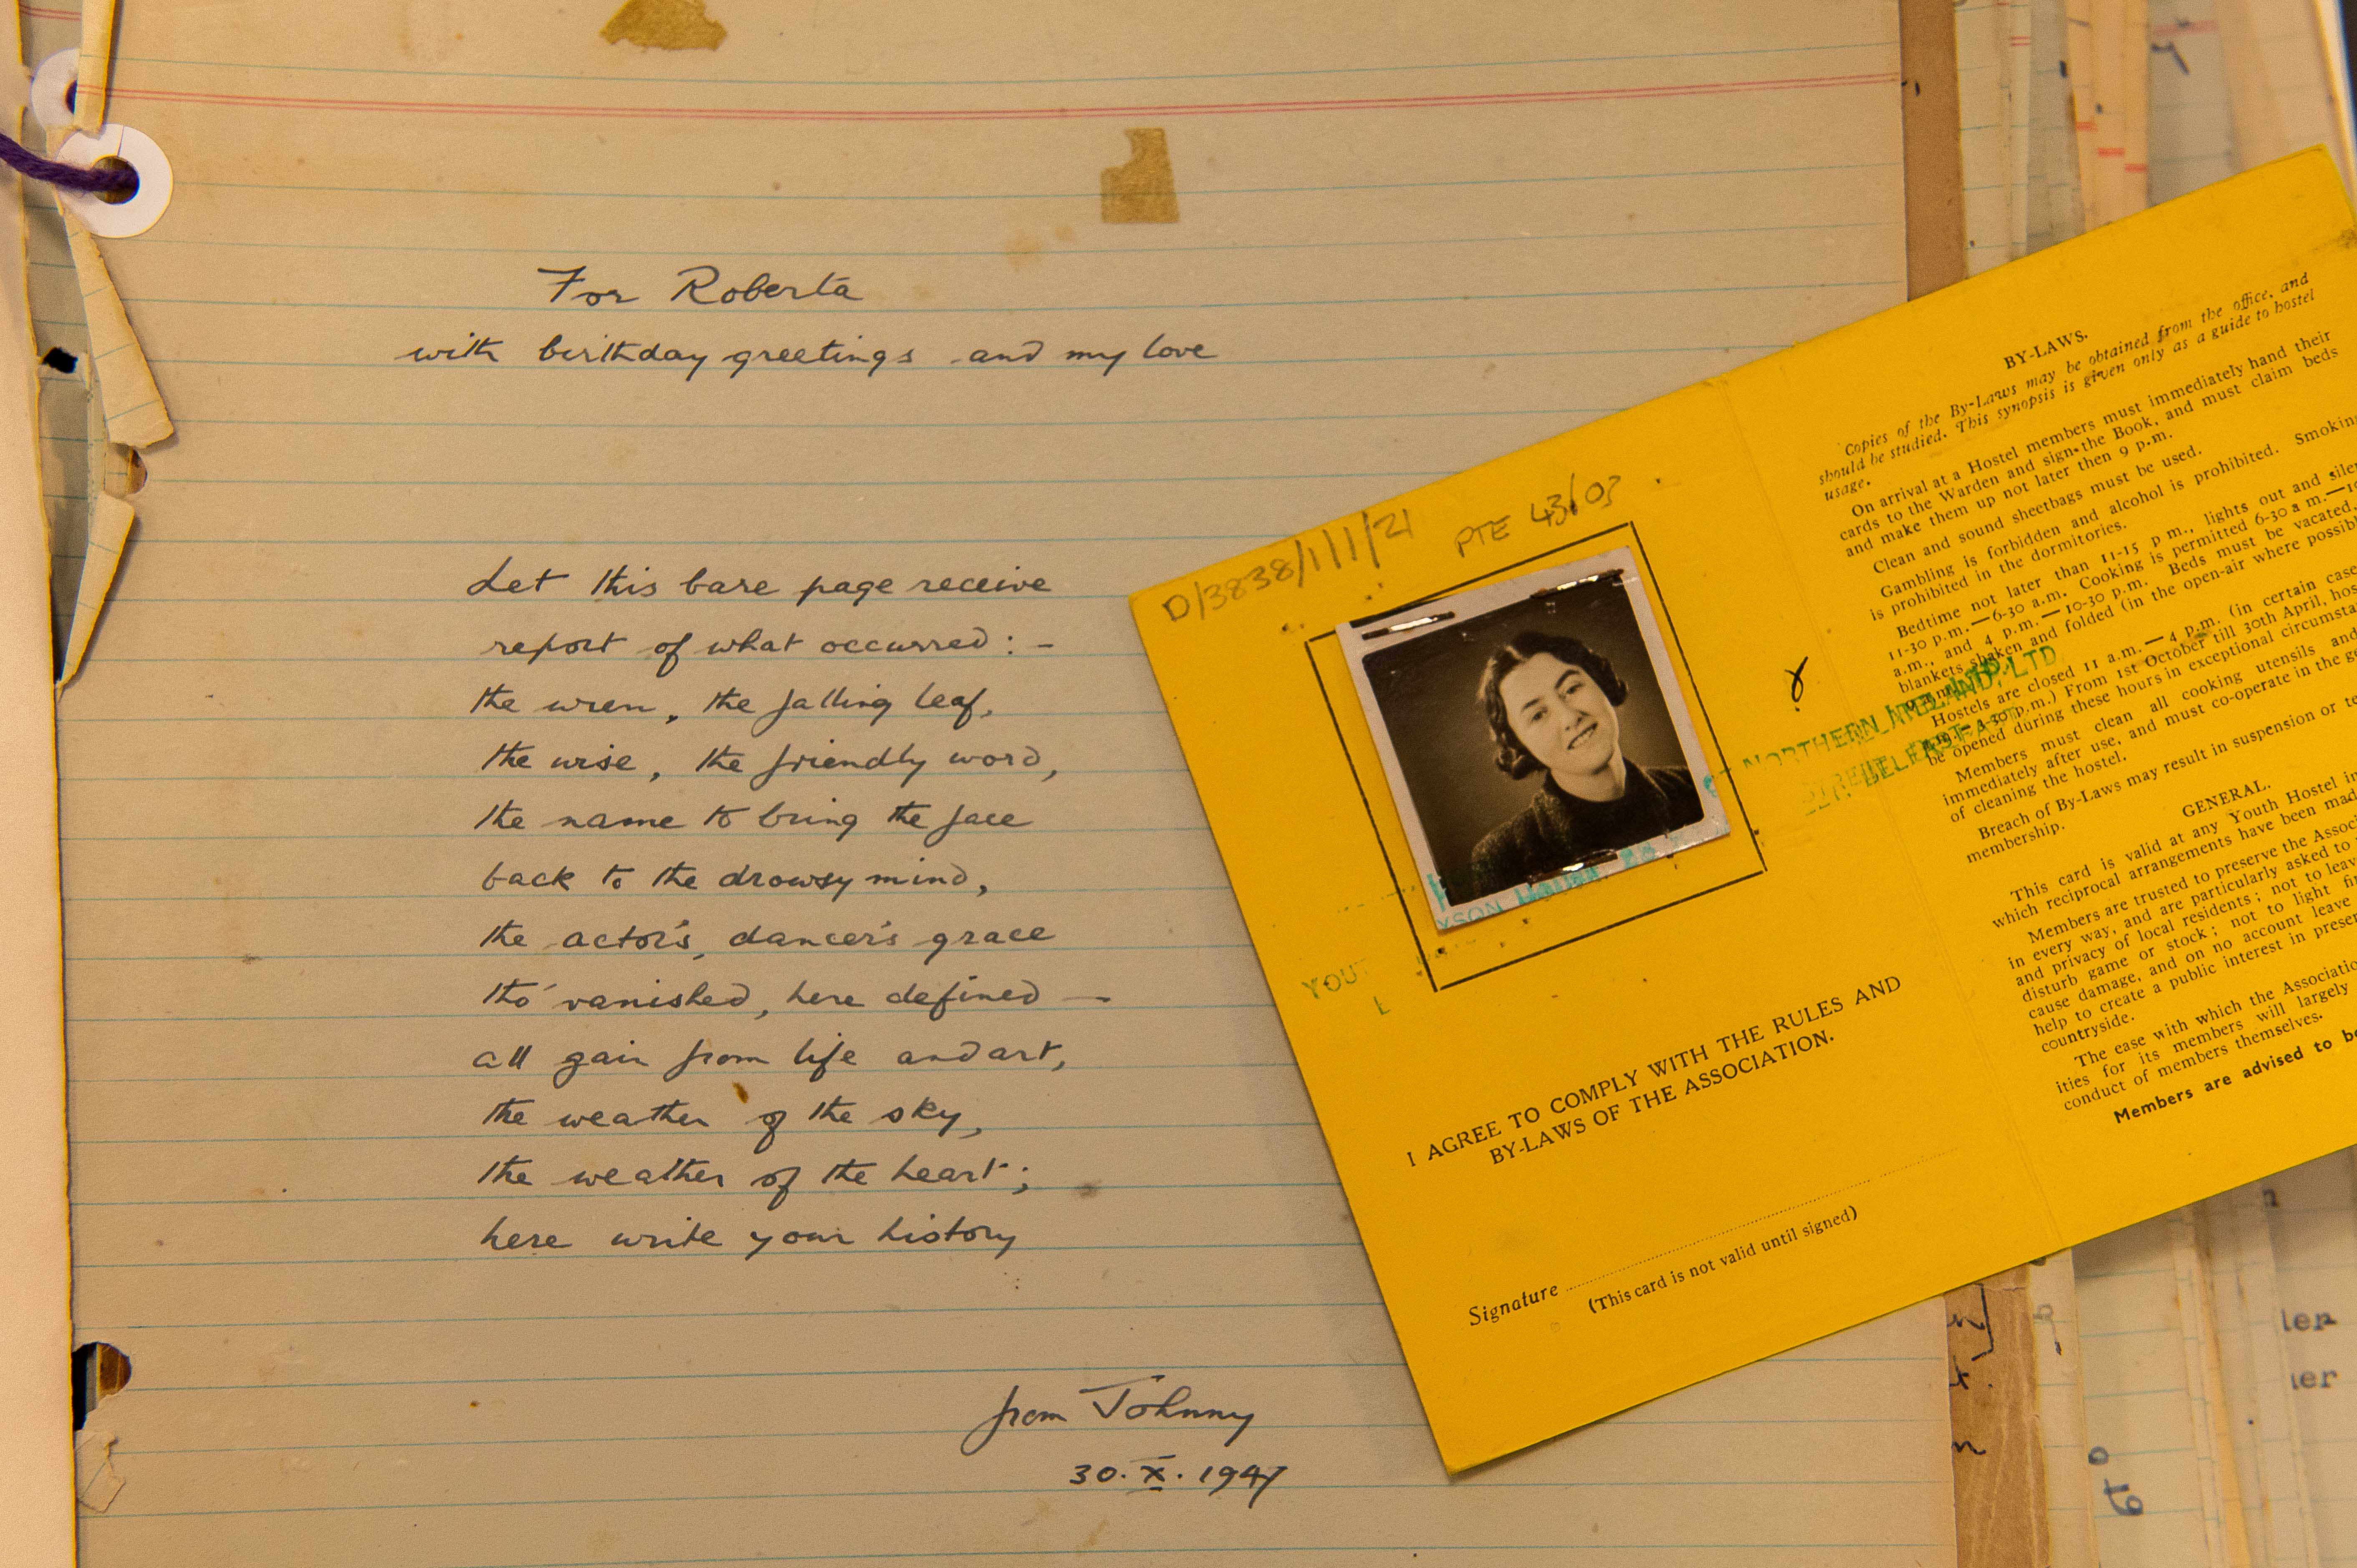 For Roberta
with birthday greetings and my love
Let this bare page receive
report of what occurred : -
the wren, the falling leaf,
the wise, the friendly word,
the name to bring the face
back to the drowsy mind,
the actor's, dancer's grace
tho' vanished, here defined —
all gain from life and art,
the weather of the sky,
the weather of the heart;
here write your history
from Johnny
30. X. 1947
D/3838/1/1/21 PTE 43/03
YSON
YOUT
I AGREE TO COMPLY WITH THE RULES AND
BY-LAWS OF THE ASSOCIATION.
Signature
(This card is not valid until signed)
NORTHERN IRELAND, LTD
BELFAST
BY-LAWS.
Copies of the By-Laws may be obtained from the office, and
should be studied. This synopsis is given only as a guide to hostel
usage.
On arrival at a Hostel members must immediately hand their
cards to the Warden and sign the Book, and must claim beds
and make them up not later then 9 p.m.
Clean and sound sheetbags must be used.
Gambling is forbidden and alcohol is prohibited. Smokin
is prohibited in the dormitories.
Bedtime not later than 11-15 p m., lights out and sile
11-30 p.m.—6-30 a.m. Cooking is permitted 6-30 a m.—10
a.m., and 4 p.m.—10-30 p.m. Beds must be vacated,
blankets shaken and folded (in the open-air where possib
Hostels are closed 11 a.m.—4 p.m. (in certain case
4-30 p.m.) From 1st October till 30th April, hos
be opened during these hours in exceptional circumsta
Members must clean all cooking utensils and
immediately after use, and must co-operate in the ge
of cleaning the hostel.
Breach of By-Laws may result in suspension or te
membership.
GENERAL.
This card is valid at any Youth Hostel in
which reciprocal arrangements have been mad
Members are trusted to preserve the Associ
in every way, and are particularly asked to
and privacy of local residents; not to leav
disturb game or stock; not to light fi
cause damage, and on no account leave
help to create a public interest in preser
countryside.
The ease with which the Associatio
ities for its members will largely
conduct of members themselves.
Members are advised to be
ler
ler